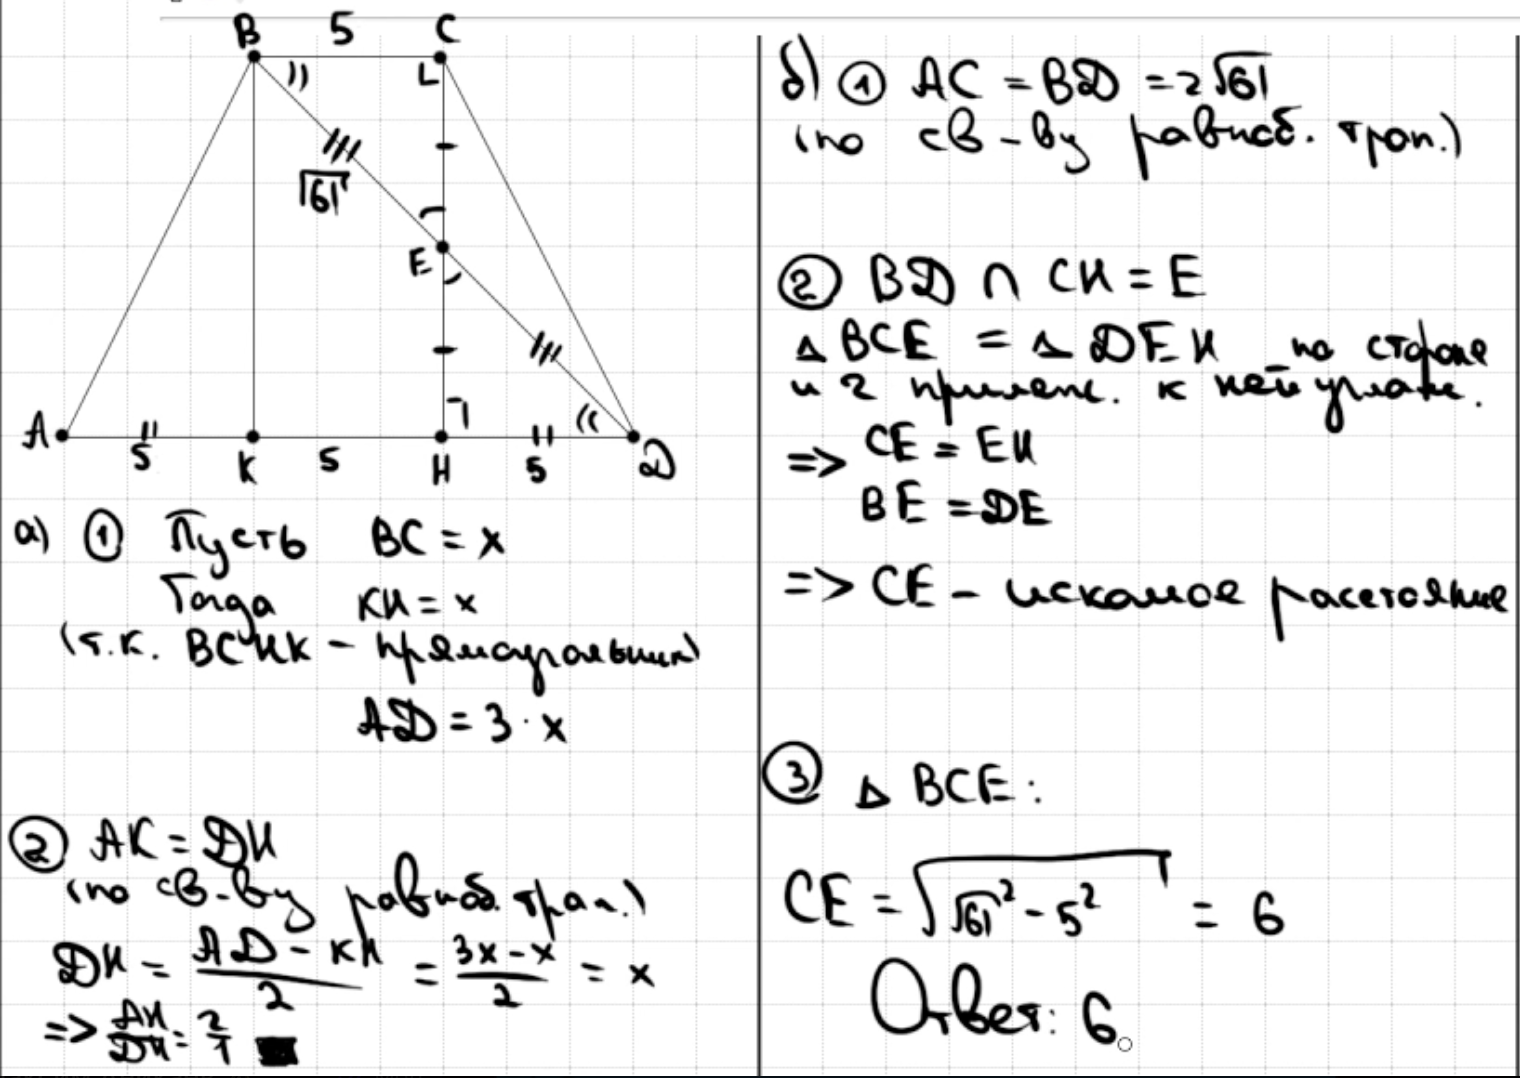 B 5 C
L
√61
E
A 5 K 5 H 5 D
а) ① Пусть BC = x
Тогда KH = x
(т.к. BCHK - прямоугольник)
AD = 3 · x
② AK = DH
(по св-ву равноб. трап.)
DH = (AD - KH)/2 = (3x - x)/2 = x
=> AH/DH = 2/1
б) ① AC = BD = 2√61
(по св-ву равноб. трап.)
② BD ∩ CH = E
△ BCE = △ DEH по стороне
и 2 прилеж. к ней углам.
=> CE = EH
BE = DE
=> CE - искомое расстояние
③ △ BCE:
CE = √(√61² - 5²) = 6
Ответ: 6.